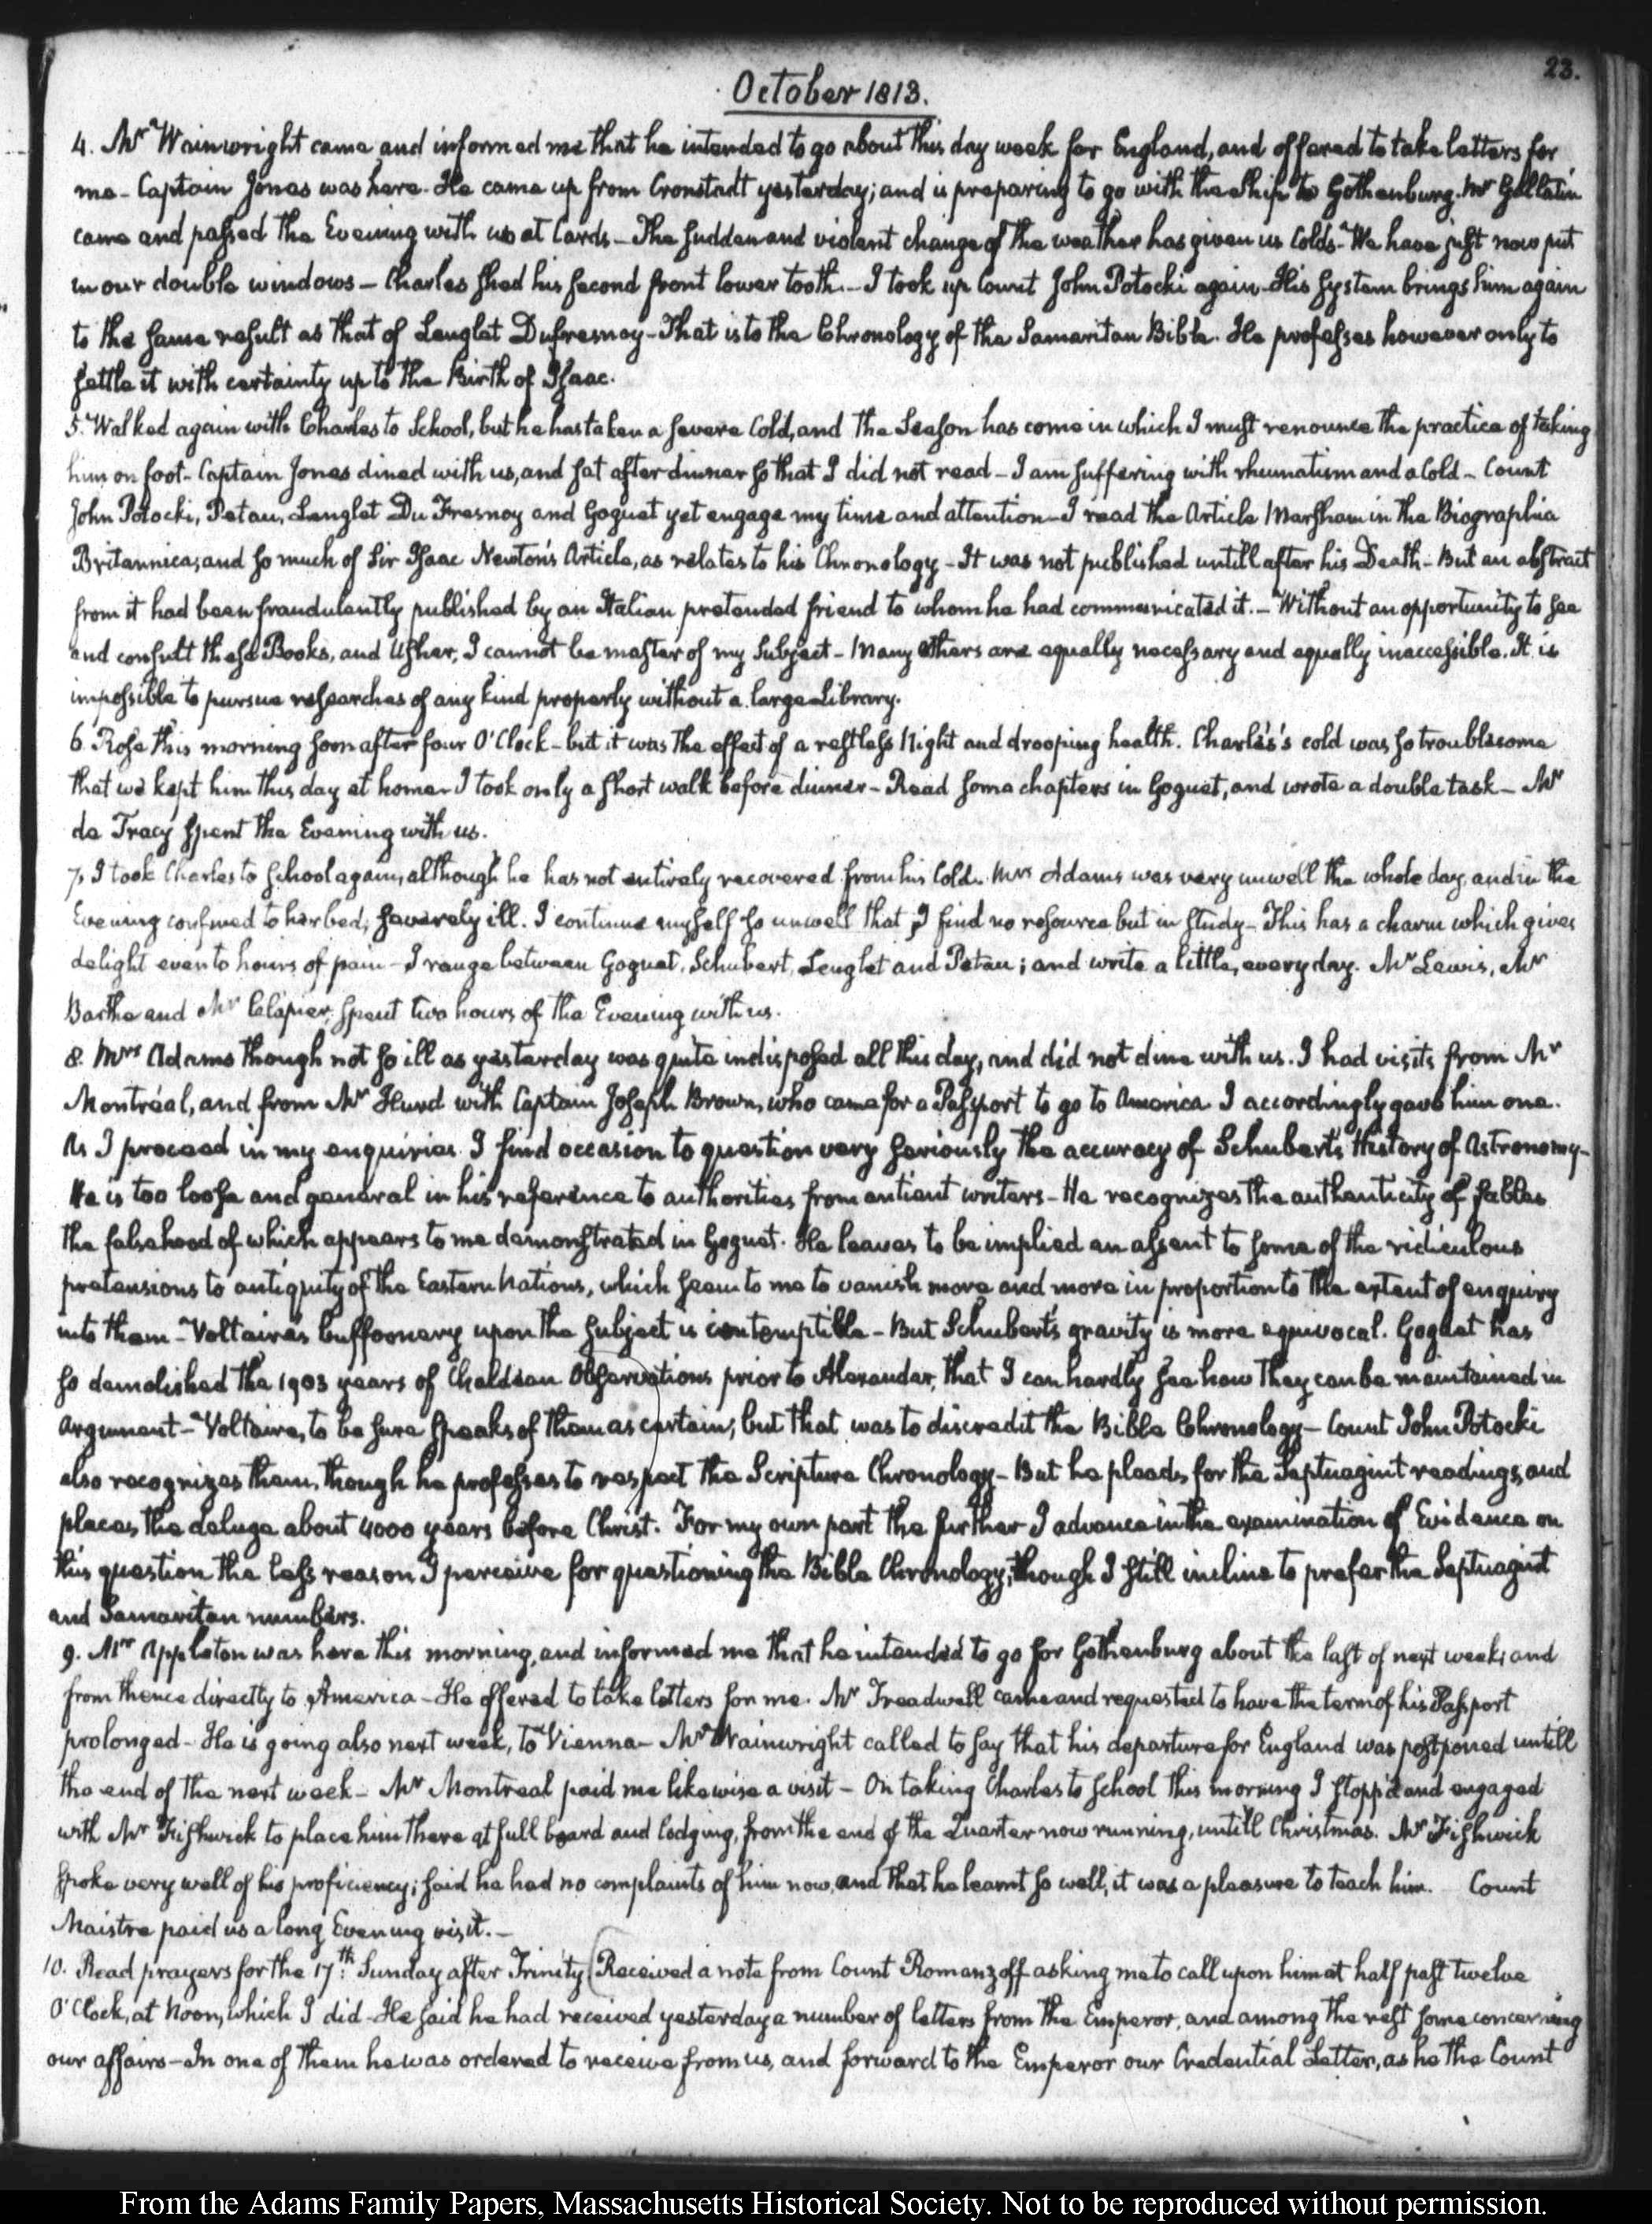 23.
October 1813.
4. Mr Wainwright came and informed me that he intended to go about this day week for England, and offered to take letters for
me – Captain Jones was here. He came up from Cronstadt yesterday; and is preparing to go with the Ship to Gothenburg. Mr Gallatin
came and passed the Evening with us at Cards – The sudden and violent change of the weather has given us Colds – We have just now put
in our double windows – Charles shed his second front lower tooth – I took up Count John Potocki again – His system brings him again
to the same result as that of Lenglet Dufresnoy – That is to the Chronology of the Samaritan Bible. He professes however only to
settle it with certainty up to the Birth of Isaac.
5. Walked again with Charles to School, but he has taken a severe Cold, and the Season has come in which I must renounce the practice of taking
him on foot – Captain Jones dined with us, and sat after dinner so that I did not read – I am suffering with rheumatism and a Cold – Count
John Potocki, Petau, Lenglet Du Fresnoy and Goguet yet engage my time and attention – I read the Article Marsham in the Biographia
Britannica; and so much of Sir Isaac Newton's Article, as relates to his Chronology – It was not published untill after his Death – But an abstract
from it had been fraudulently published by an Italian pretended friend to whom he had communicated it. – Without an opportunity to see
and consult these Books, and Usher, I cannot be master of my Subject – Many others are equally necessary and equally inaccessible. It is
impossible to pursue researches of any kind properly without a large Library.
6. Rose this morning soon after four O'Clock – but it was the effect of a restless Night and drooping health. Charles's cold was so troublesome
that we kept him this day at home – I took only a short walk before dinner – Read some chapters in Goguet, and wrote a double task – Mr
de Tracy spent the Evening with us.
7. I took Charles to School again, although he has not entirely recovered from his Cold. Mrs Adams was very unwell the whole day, and in the
Evening confined to her bed, severely ill. I continue myself so unwell that I find no resource but in study – This has a charm which gives
delight even to hours of pain – I range between Goguet, Schubert, Lenglet and Petau; and write a little, every day. Mr Lewis, Mr
Barthe and Mr Clapier, spent two hours of the Evening with us.
8. Mrs Adams though not so ill as yesterday was quite indisposed all this day, and did not dine with us. I had visits from Mr
Montréal, and from Mr Hurd with Captain Joseph Brown, who came for a Passport to go to America I accordingly gave him one.
As I proceed in my enquiries I find occasion to question very seriously the accuracy of Schubert's History of Astronomy –
He is too loose and general in his reference to authorities from antient writers – He recognizes the authenticity of fables
the falsehood of which appears to me demonstrated in Goguet. He leaves to be implied an assent to some of the ridiculous
pretensions to antiquity of the Eastern Nations, which seem to me to vanish more and more in proportion to the extent of enquiry
into them – Voltaire's buffoonery upon the subject is contemptible – But Schubert's gravity is more equivocal. Goguet has
so demolished the 1903 years of Chaldean Observations prior to Alexander, that I can hardly see how they can be maintained in
argument – Voltaire, to be sure speaks of them as certain; but that was to discredit the Bible Chronology – Count John Potocki
also recognizes them, though he professes to respect the Scripture Chronology – But he pleads, for the Septuagint readings, and
places, the deluge about 4000 years before Christ. For my own part the further I advance in the examination of Evidence on
this question the less reason I perceive for questioning the Bible Chronology, though I still incline to prefer the Septuagint
and Samaritan numbers.
9. Mr Appleton was here this morning, and informed me that he intended to go for Gothenburg about the last of next week; and
from thence directly to America – He offered to take letters for me. Mr Treadwell came and requested to have the term of his Passport
prolonged – He is going also next week, to Vienna – Mr Wainwright called to say that his departure for England was postponed untill
the end of the next week – Mr Montreal paid me likewise a visit – On taking Charles to School this morning I stopp'd and engaged
with Mr Fishwick to place him there at full board and lodging, from the end of the Quarter now running, untill Christmas. Mr Fishwick
spoke very well of his proficiency; said he had no complaints of him now, and that he learnt so well, it was a pleasure to teach him. Count
Maistre paid us a long Evening visit. –
10. Read prayers for the 17th: Sunday after Trinity (Received a note from Count Romanzoff asking me to call upon him at half past twelve
O'Clock, at Noon, which I did – He said he had received yesterday a number of letters from the Emperor, and among the rest some concerning
our affairs – In one of them he was ordered to receive from us, and forward to the Emperor our Credential Letter, as he the Count
From the Adams Family Papers, Massachusetts Historical Society. Not to be reproduced without permission.